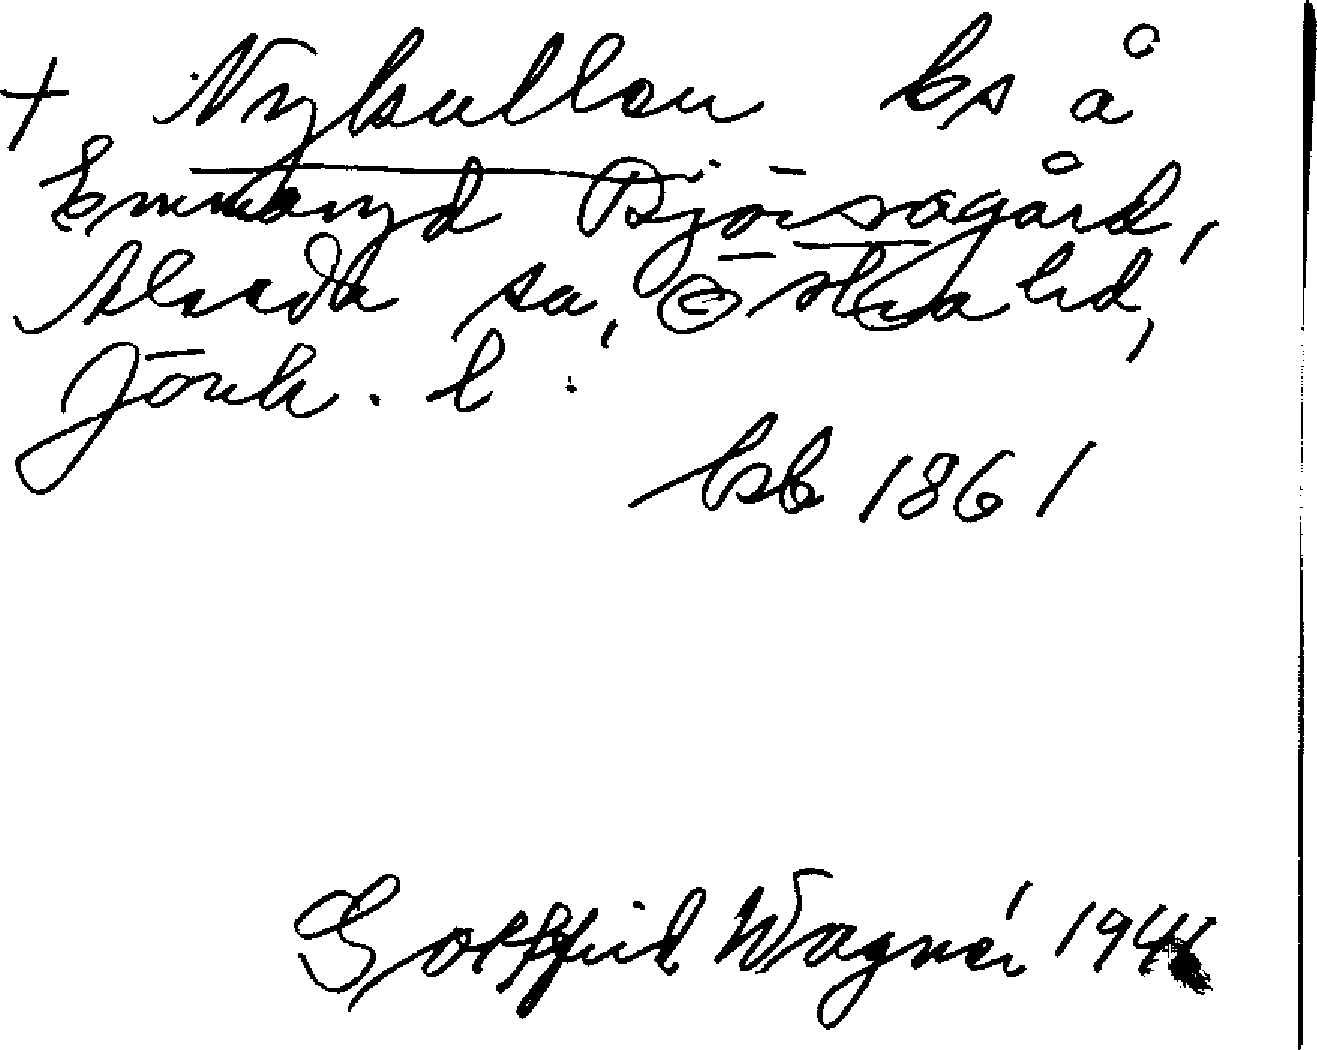 + Nykullen bs å
Emmaryd Björsagård,
Alseda sn, Östra hd,
Jönk. l.
bsb 1861
Gottfrid Wagnér 194